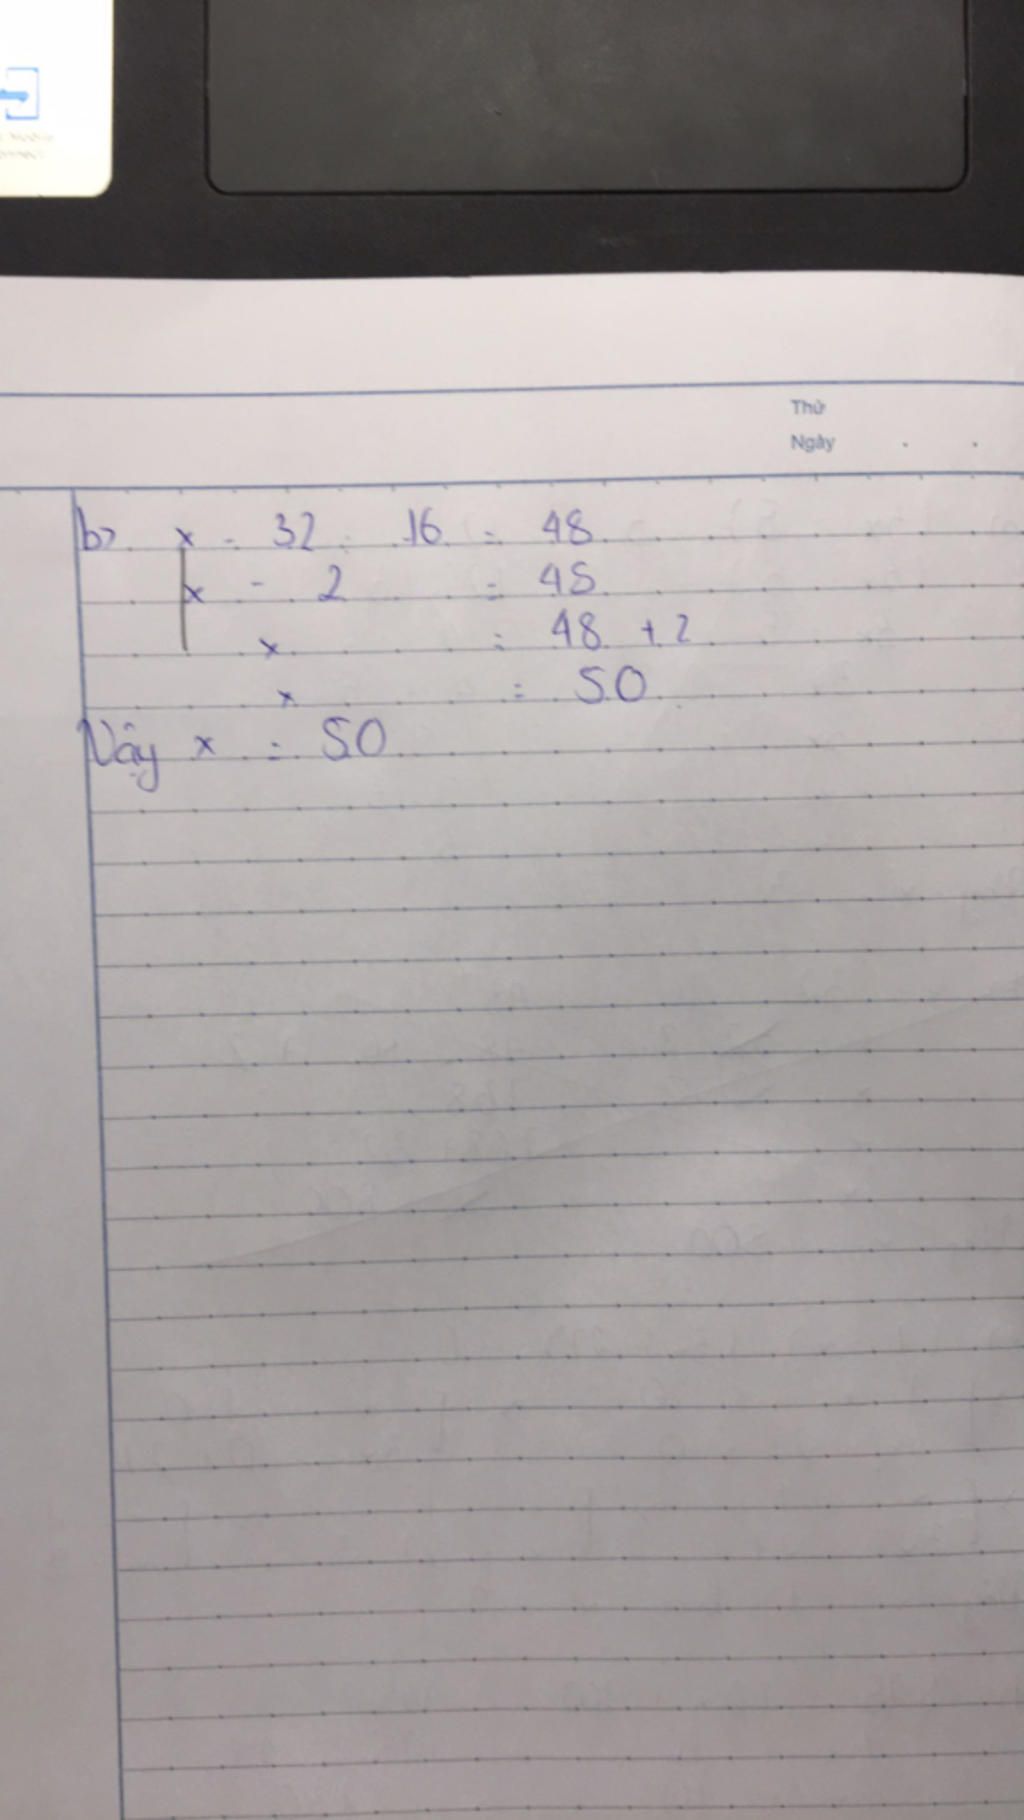 Thứ
Ngày . .
b) x - 32 : 16 = 48
x - 2 = 48
x = 48 + 2
x = 50
Vậy x = 50